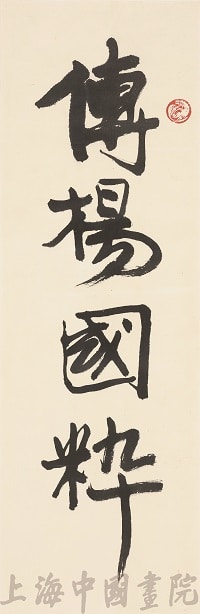 傳楊國粹
上海中國畫院